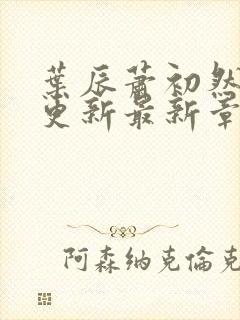 葉辰蕭初然
更新最新章
阿森納克倫克